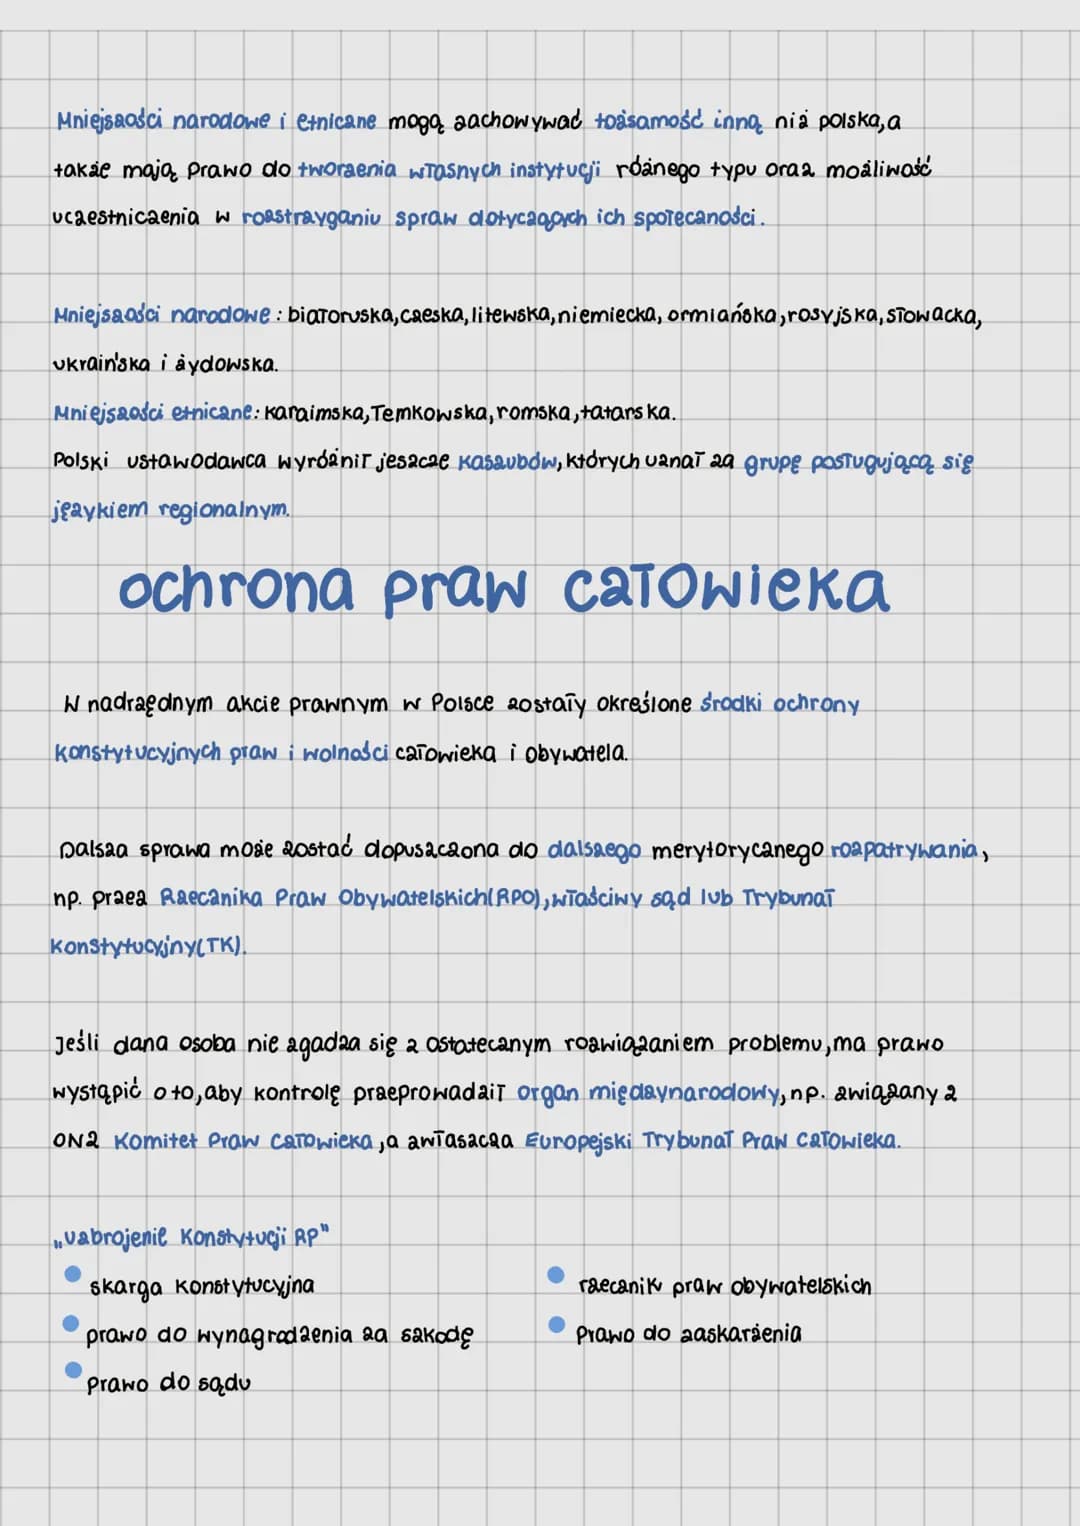 Mniejszości narodowe i etniczne mogą zachowywać tożsamość inną niż polska, a
także mają prawo do tworzenia własnych instytucji różnego typu oraz możliwość
uczestniczenia w rozstrzyganiu spraw dotyczących ich społeczności.
Mniejszości narodowe: białoruska, czeska, litewska, niemiecka, ormiańska, rosyjska, słowacka,
ukraińska i żydowska.
Mniejszości etniczne: karaimska, łemkowska, romska, tatarska.
Polski ustawodawca wyróżnił jeszcze kaszubów, których uznał za grupę posługującą się
językiem regionalnym.
ochrona praw człowieka
W nadrzędnym akcie prawnym w Polsce zostały określone środki ochrony
konstytucyjnych praw i wolności człowieka i obywatela.
Dalsza sprawa może zostać dopuszczona do dalszego merytorycznego rozpatrywania,
np. przez Rzecznika Praw Obywatelskich (RPO), właściwy sąd lub Trybunał
Konstytucyjny (TK).
Jeśli dana osoba nie zgadza się z ostatecznym rozwiązaniem problemu, ma prawo
wystąpić o to, aby kontrolę przeprowadził organ międzynarodowy, np. związany z
ONZ Komitet Praw Człowieka, a zwłaszcza Europejski Trybunał Praw Człowieka.
„uzbrojenie Konstytucji RP"
skarga konstytucyjna
rzecznik praw obywatelskich
prawo do wynagrodzenia za szkodę
Prawo do zaskarżenia
Prawo do sądu